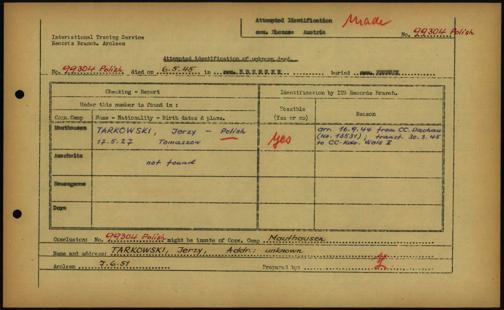 Attempted Identification
Made
com. Ebensee Austria
No. 99304 Polish
International Tracing Service
Records Branch, Arolsen
Attempted identification of unknown dept.
No. 99304 Polish died on 6.5.45 in com. EBENSEE buried com. EBENSEE
Checking - Report
Identification by ITS Records Branch.
Under this number is found in:
Possible (Yes or no)
Reason
Conc.Camp
Name - Nationality - Birth dates & place.
Mauthausen
TARKOWSKI, Jerzy - Polish
17.5.27 Tomaszow
Yes
arr. 16.9.44 from CC. Dachau
(No. 13531); transf. 30.3.45
to CC-Kdo. Wels I
Auschwitz
not found
Neuengamme
Dora
Conclusion: No. 99304 Polish might be inmate of Conc. Camp Mauthausen
Name and address: TARKOWSKI, Jerzy, Addr.: unknown
Arolsen 7.6.51 Prepared by: